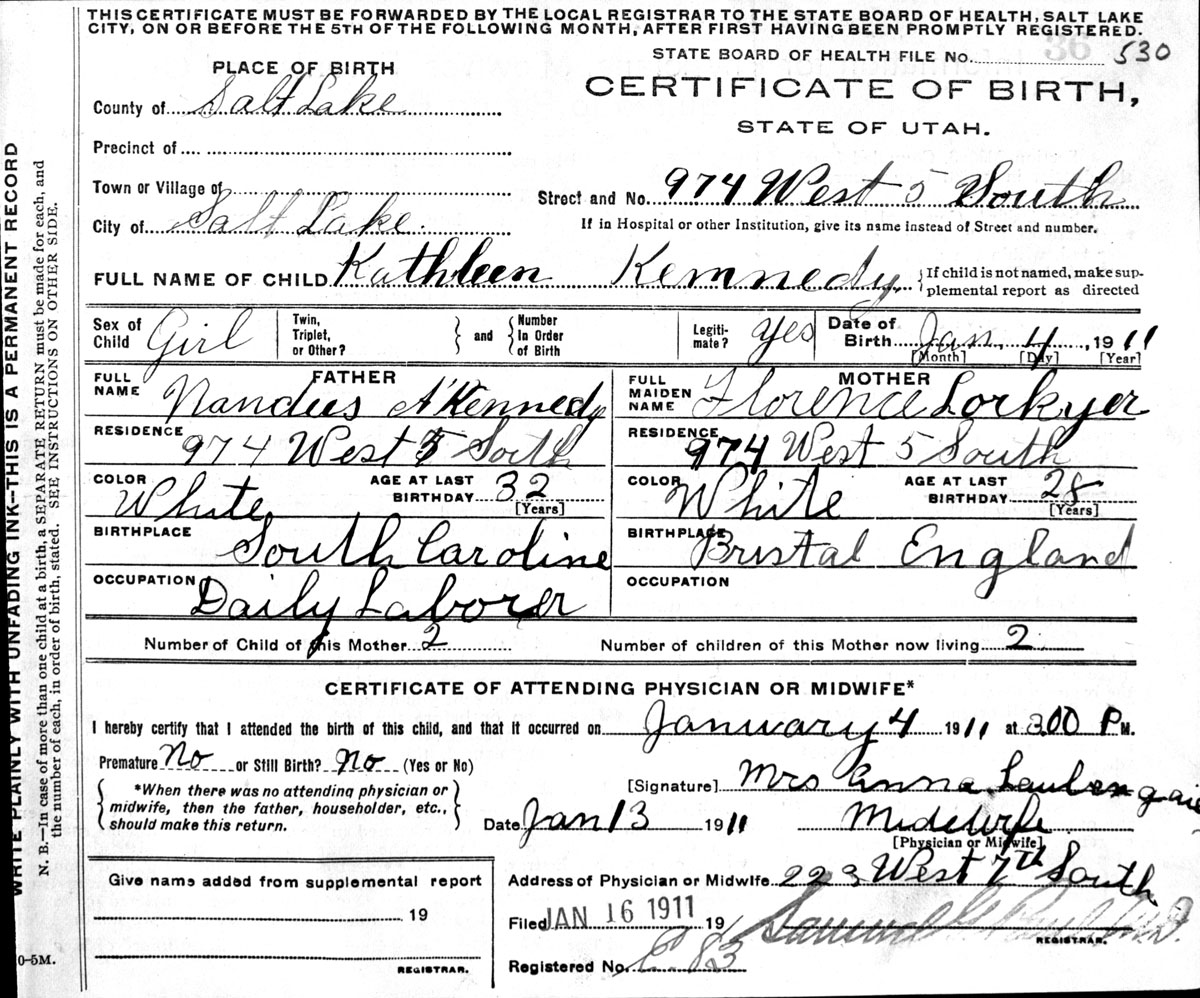 THIS CERTIFICATE MUST BE FORWARDED BY THE LOCAL REGISTRAR TO THE STATE BOARD OF HEALTH, SALT LAKE
CITY, ON OR BEFORE THE 5TH OF THE FOLLOWING MONTH, AFTER FIRST HAVING BEEN PROMPTLY REGISTERED.
36
STATE BOARD OF HEALTH FILE No. 530
PLACE OF BIRTH
CERTIFICATE OF BIRTH,
STATE OF UTAH.
County of Salt Lake
Precinct of
Town or Village of
City of Salt Lake.
Street and No. 974 West 5 South
If in Hospital or other Institution, give its name instead of Street and number.
FULL NAME OF CHILD Kathleen Kemnedy.
If child is not named, make sup-
plemental report as directed
Sex of Child Girl
Twin, Triplet, or Other?
and
Number In Order of Birth
Legiti-mate? Yes
Date of Birth Jan. 4, 1911
[Month] [Day] [Year]
FATHER
FULL NAME A'Kennedy
RESIDENCE 974 West 5 South
COLOR White
AGE AT LAST BIRTHDAY 32
[Years]
BIRTHPLACE South Caroline
OCCUPATION Daily Laborer
MOTHER
FULL MAIDEN NAME Florence Lorkyer
RESIDENCE 974 West 5 South
COLOR White
AGE AT LAST BIRTHDAY 28
[Years]
BIRTHPLACE Bristal England
OCCUPATION
Number of Child of this Mother 2
Number of children of this Mother now living 2
CERTIFICATE OF ATTENDING PHYSICIAN OR MIDWIFE*
I hereby certify that I attended the birth of this child, and that it occurred on January 4 1911 at 3.00 P M.
Premature No or Still Birth? No (Yes or No)
*When there was no attending physician or
midwife, then the father, householder, etc.,
should make this return.
[Signature] Mrs Anna
Date Jan 13 1911
Midewife
[Physician or Midwife]
Address of Physician or Midwife. 223 West 7th South
Filed JAN 16 1911 19
Samuel G Paul M.D.
REGISTRAR.
Registered No. C 83
Give name added from supplemental report
19
REGISTRAR.
WRITE PLAINLY WITH UNFADING INK—THIS IS A PERMANENT RECORD
N. B.—In case of more than one child at a birth, a SEPARATE RETURN must be made for each, and
the number of each, in order of birth, stated. SEE INSTRUCTIONS ON OTHER SIDE.
0-5M.